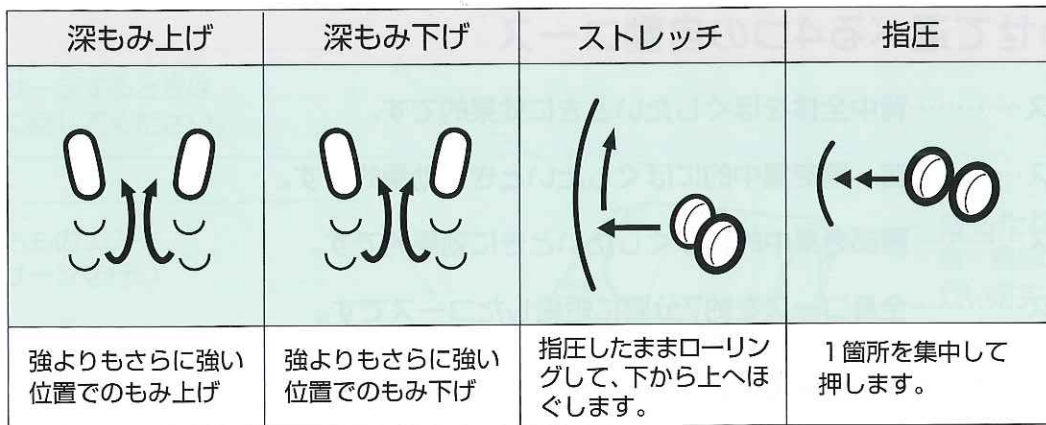 深もみ上げ
深もみ下げ
ストレッチ
指圧
強よりもさらに強い
位置でのもみ上げ
強よりもさらに強い
位置でのもみ下げ
指圧したままローリン
グして、下から上へほ
ぐします。
1箇所を集中して
押します。